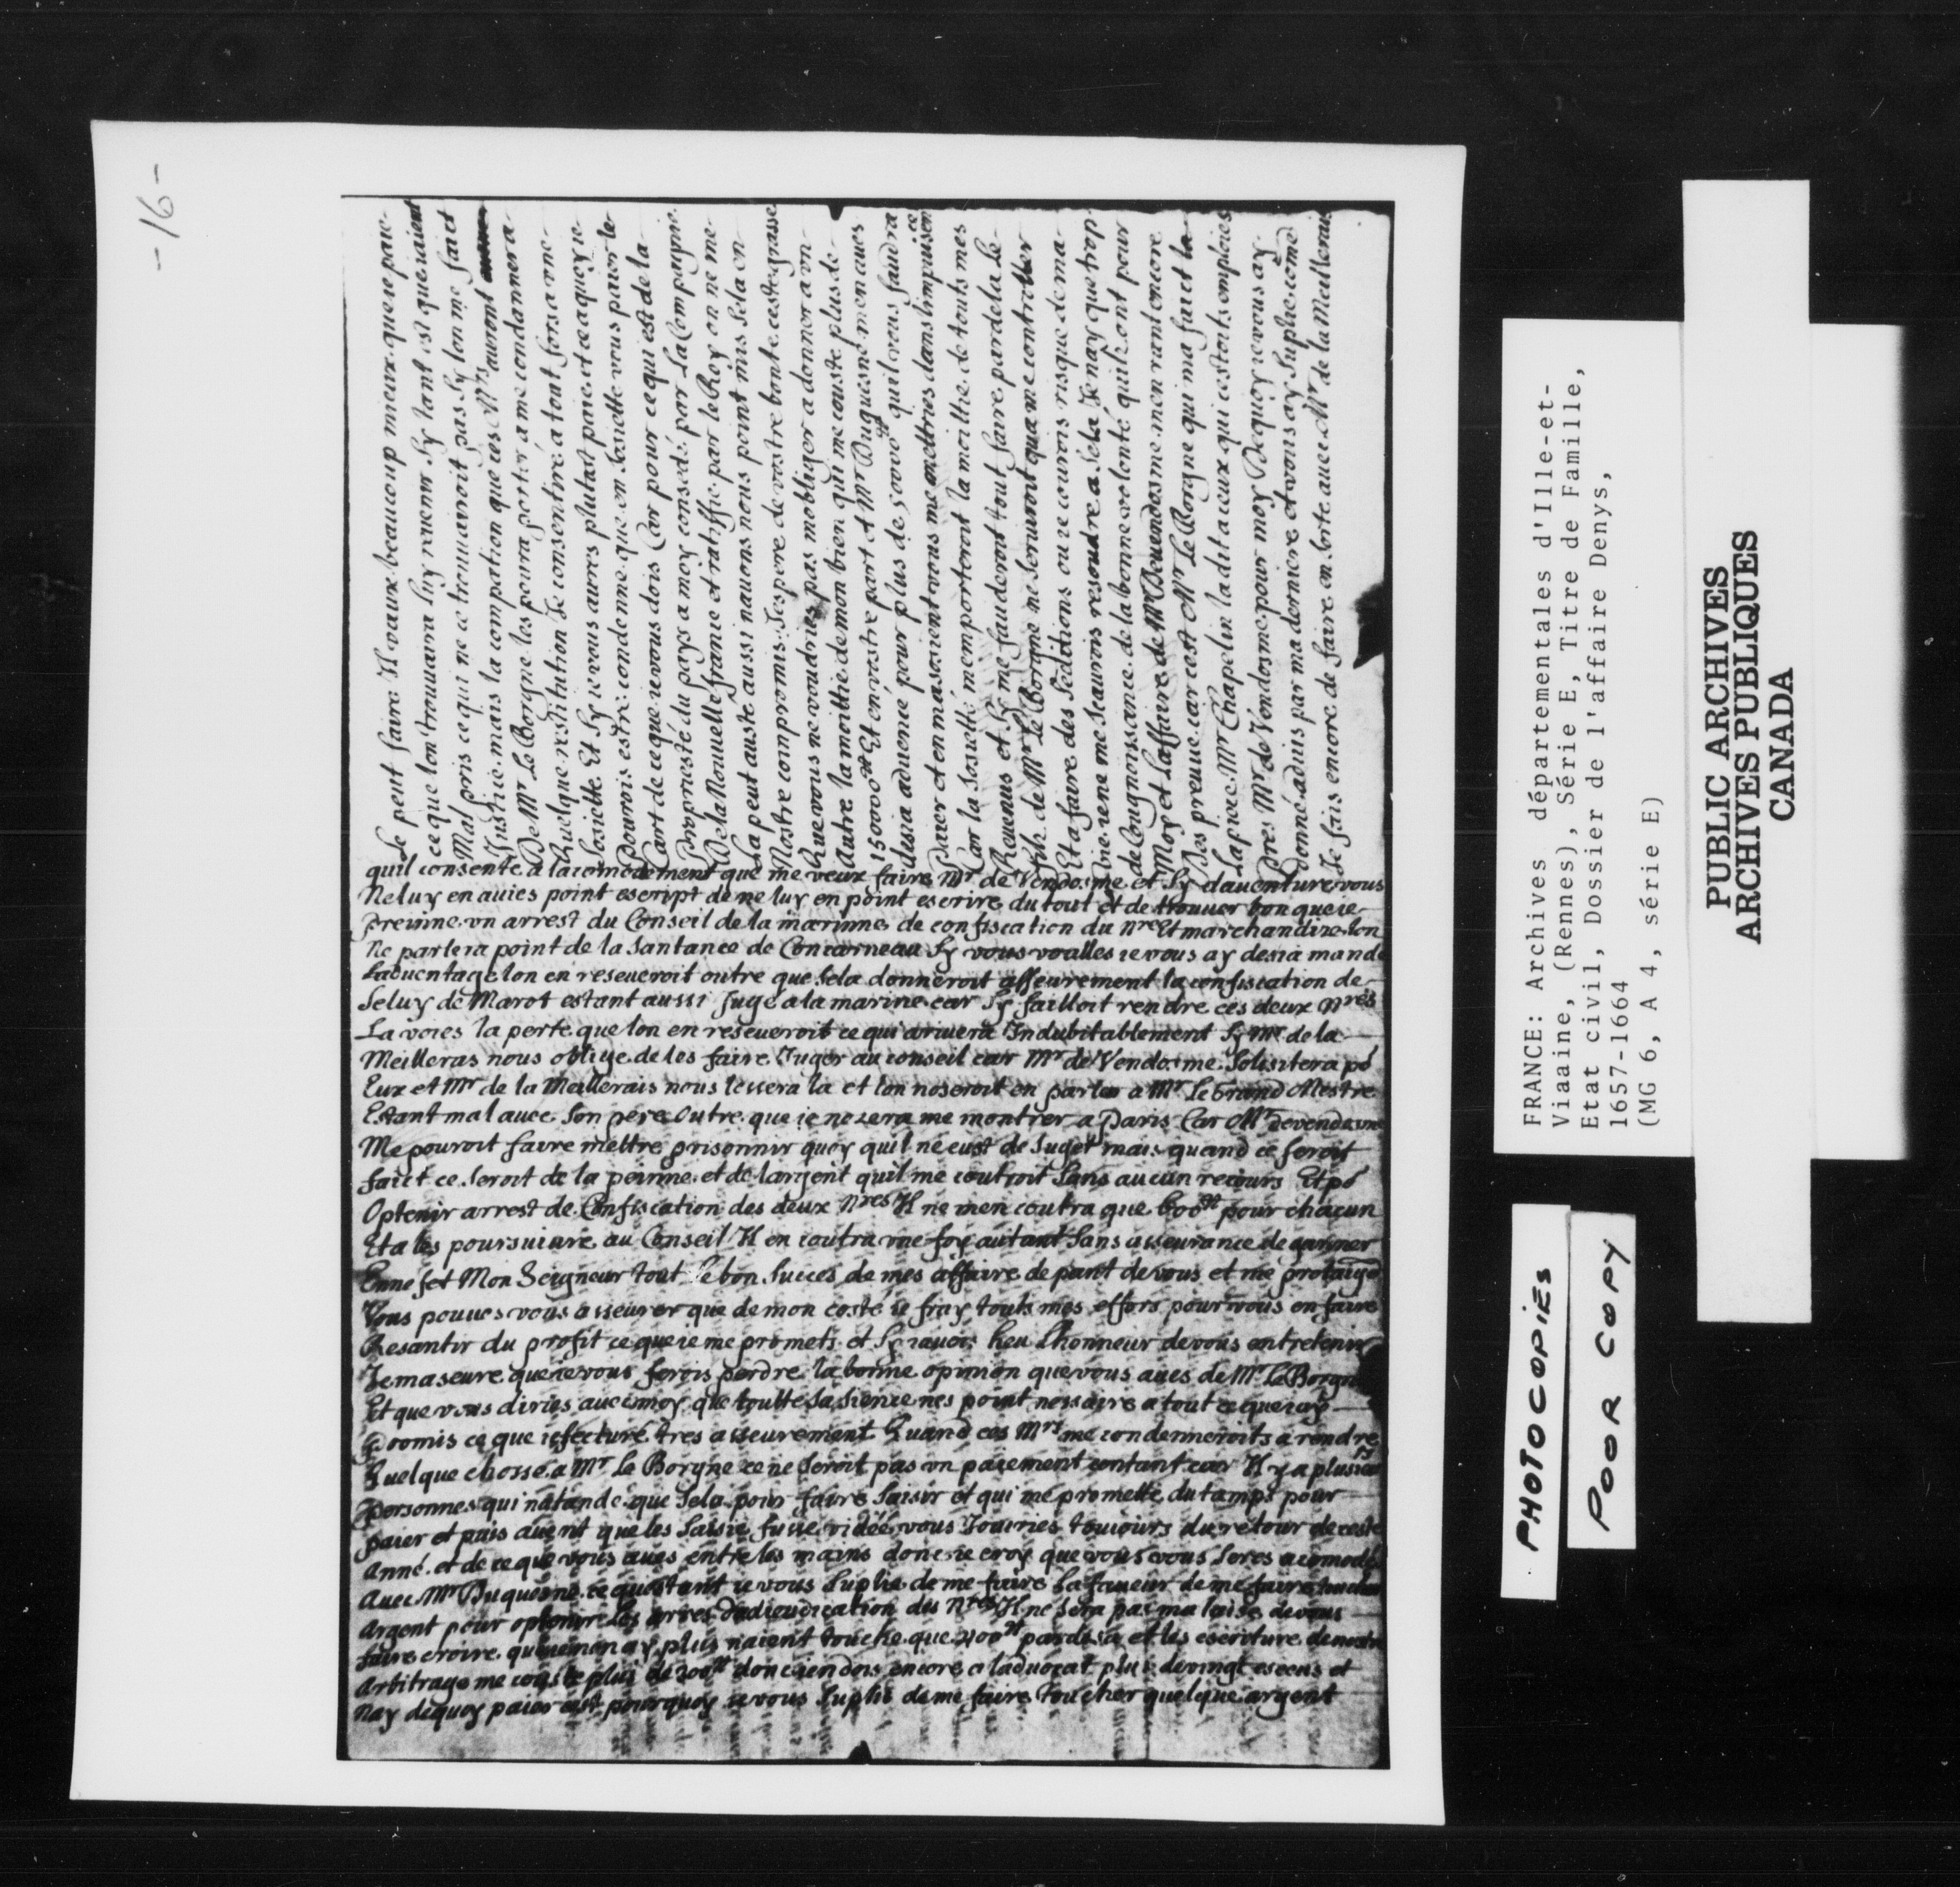 -16-
Se peut faire Il vaux beaucoup mieux que ie paie
ce que lon trouuaira luy reuenir Sy tant est que iaient
Mal pris ce qui ne ce trouuairoit pas Sy lon me fait
Justice mais la compation que ces Mrs auront
De Mr Le Borgne les poura porter a me condannera
Quelque restitution Je consentiré a tout fors a vne
Sosiette Et Sy ie vous aures plutast paie et ce a quoy ie
Pourois estre condenne que en Sosiette vous paier le
Cart de ce que ie vous dois Car pour ce qui est de la
Propriesté du pays a moy consedé par La Compagnie
De la Nouuelle france et ratiffie par le Roy on ne me
La peut austé aussi nauons nous point mis Sela en
Nostre compromis Jespere de vostre bonte ceste grasse
Que vous ne voudries pas mobliger a donner a vn
Autre la moittie de mon bien qui me couste plus de
150000tt Et en vostre part et Mr Duquesne men eues
desia aduence pour plus de 50000tt quil vous faudra
Paier et en masosient vous me mettries dans limpuisence
Car la Sosietté memporteroit la moittie de touts mes
Reuenus et Sy me fauderoit tout faire par dela Le
Filz de Mr Le Borgne ne Seruiroit qua me contreller
Et a faire des Seditions ou ie courois risque de ma
vie ie ne me Scaurois resoudre a Sela Je nay que trop
de Coungnoissance de la bonne volonté quilz ont pour
Moy et Laffaire de Mr Deuendosme men rant encore
Des preuue car cest Mr Le Borgne qui ma fait la
La piece Mr Chapelin la dit a ceux qui ces touts emploies
Pres Mr de Vendosme pour moy De quoy ie vous ay
donné aduis par ma derniere et vous ay Suplie come
Je fais encore de faire en Sorte auec Mr de la Meillerais
quil consente a lacomodement que me veux faire Mr de Vendosme et Sy dauenture vous
Ne luy en auies point escript de ne luy en point escrire du tout et de trouuer bon que ie
preinne vn arrest du Conseil de la marinne de confiscation du nre Et marchandize lon
Ne parlera point de la Santance de Concarneau Sy vous voualles ie vous ay desia mandé
Laduentage lon en reseueroit outre que Sela donneroit asseurement la confiscation de
Seluy de Marot estant aussi Jugé a la marine car Sy failloit rendre ces deux nres
La voies la perte que lon en reseueroit ce qui ariuera Indubitablement Sy Mr de la
Meilleras nous oblige de les faire Juger au conseil car Mr de Vendosme Solisitera po
Eux et Mr de la Meillerais nous lessera la et lon noseroit en parler a Mr Le Grand Mestre
Estant mal auec Son pere Outre que ie nozera me montrer a Paris Car Mr deuendosme
Me pouroit faire mettre prisonnir quoy quil ne eust de Suget mais quand ce Seroit
faict ce Seroit de la peinne et de largent quil me coutroit Sans aucun recours Et po
Optenir arrest de Confiscation des deux nres Il ne men coutra que 600tt pour chacun
Et a les poursuiure au Conseil Il en coutra vne foy autant Sans asseurance de gaigner
Enne fet Mon Seigneur tout le bon Succes de mes affaire depant de vous et me protaige
Vous pouues vous asseurer que de mon costé ie fray touts mes effors pour vous en faire
Resantir du profit ce que ie me promets et Sy iauois heu Lhonneur de vous entretenir
Je maseure que ie vous ferois perdre la bonne opinion que vous aues de Mr Le Borgne
Et que vous diries auec moy que toutte Sa Sience nes point nessaire a tout ce que iay
Promis ce que iefecturé tres asseurement Quand ces Mrs me condenneroits a rendre
Quelque chosse a Mr Le Borgne ce ne Seroit pas vn paiement contant car Il y a plusieurs
personnes qui natande que Sela pour faire Saisir et qui me promette du tamps pour
paier et puis auent que les Saisie fusse vidée vous Jouiries toujours du retour de ceste
Anné et de ce que vous aues entre les mains donc ie croy que vous vous Seres acomodé
Auec Mr Duquesne ce questant ie vous Suplie de me faire La faueur de me faire toucher
Argent pour optenir les arres dadiudication des Nres Il ne Sera pas mal aise de vous
faire croire que ie nen ay plus naient touche que 400tt par desa et les escriture de nostre
Arbitrage me couste plus de 200tt donc ien dois encore a laduocat plus de vingt escus et
Nay de quoy paier cest pourquoy ie vous Suplie de me faire Toucher quelque argent
FRANCE: Archives départementales d'Ille-et-
Viaaine, (Rennes), Série E, Titre de Famille,
Etat civil, Dossier de l'affaire Denys,
1657-1664
(MG 6, A 4, série E)
PUBLIC ARCHIVES
ARCHIVES PUBLIQUES
CANADA
PHOTOCOPIES
POOR COPY